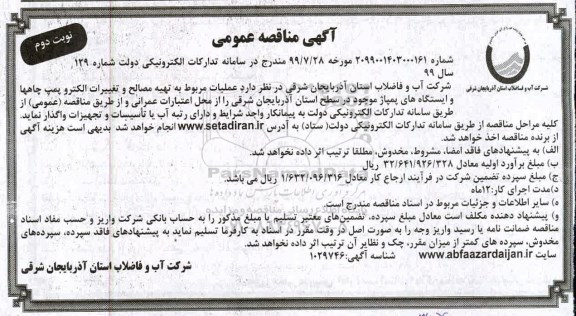 آگهی مناقصه عمومی
نوبت دوم
شرکت آب و فاضلاب استان آذربایجان شرقی
شماره ۲۰۹۹۰۰۱۴۰۳۰۰۰۱۶۱ مورخه ۹۹/۷/۲۸ مندرج در سامانه تدارکات الکترونیکی دولت شماره ۱۲۹
سال ۹۹
شرکت آب و فاضلاب استان آذربایجان شرقی در نظر دارد عملیات مربوط به تهیه مصالح و تغییرات الکترو پمپ چاهها
و ایستگاه های پمپاژ موجود در سطح استان آذربایجان شرقی را از محل اعتبارات عمرانی و از طریق مناقصه (عمومی) از
طریق سامانه تدارکات الکترونیکی دولت به پیمانکار واجد شرایط و دارای رتبه آب یا تأسیسات و تجهیزات واگذار نماید.
کلیه مراحل مناقصه از طریق سامانه تدارکات الکترونیکی دولت( ستاد) به آدرس www.setadiran.ir انجام خواهد شد بدیهی است هزینه آگهی
از برنده مناقصه اخذ خواهد شد.
الف) به پیشنهادهای فاقد امضا، مشروط، مخدوش، مطلقا ترتیب اثر داده نخواهد شد.
ب) مبلغ برآورد اولیه معادل ۳۲/۶۴۱/۹۲۶/۳۲۸ ریال
ج) مبلغ سپرده تضمین شرکت در فرآیند ارجاع کار معادل ۱/۶۳۲/۰۹۶/۳۱۶ ریال می باشد.
د)مدت اجرای کار:۱۲ماه
ه) سایر اطلاعات و جزئیات مربوط در اسناد مناقصه مندرج است.
و) پیشنهاد دهنده مکلف است معادل مبلغ سپرده، تضمین‌های معتبر تسلیم یا مبلغ مذکور را به حساب بانکی شرکت واریز و حسب مفاد اسناد
مناقصه ضمانت نامه یا رسید واریز وجه را به صورت اصل در وقت مقرر در اسناد به کارفرما تسلیم نماید به پیشنهادهای فاقد سپرده، سپرده‌های
مخدوش، سپرده های کمتر از میزان مقرر، چک و نظایر آن ترتیب اثر داده نخواهد شد.
سایت www.abfaazardaijan.ir شناسه آگهی:۱۰۲۹۷۴۶
شرکت آب و فاضلاب استان آذربایجان شرقی